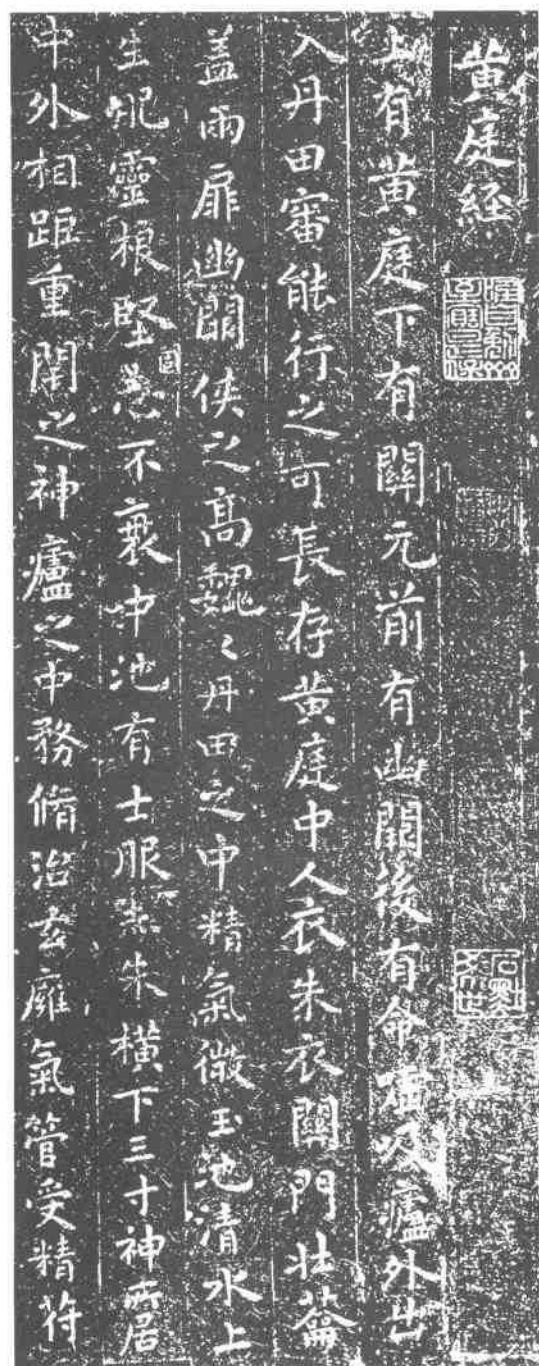 黄庭経
上有黄庭下有關元前有幽闕後有命嘘吸廬外出
入丹田審能行之可長存黄庭中人衣朱衣關門壯籥
盖兩扉幽闕俠之高巍〻丹田之中精氣微玉池清水上
生肥靈根堅固志不衰中池有士服赤朱横下三寸神所居
中外相距重閉之神廬之中務脩治玄癰氣管受精符